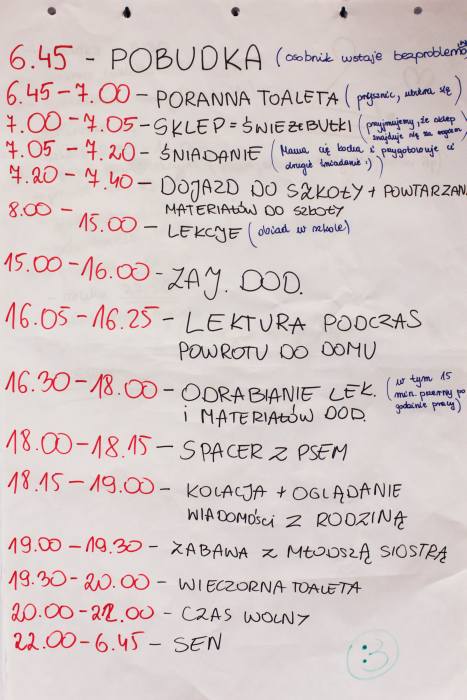 6.45 - POBUDKA (osobnik wstaje bezproblemo
6.45-7.00- PORANNA TOALETA (prysznic, ubiera się)
7.00-7.05- SKLEP = ŚWIEŻE BUŁKI (przyjmujemy, że sklep
znajduje się za rogiem
7.05-7.20- ŚNIADANIE (Mama cię kocha i przygotowuje ci
drugie śniadanie :))
7.20-7.40- DOJAZD DO SZKOŁY + POWTARZAN
MATERIAŁÓW DO SZKOŁY
8.00-15.00- LEKCJE (obiad w szkole)
15.00-16.00- ZAJ. DOD.
16.05-16.25- LEKTURA PODCZAS
POWROTU DO DOMU
16.30-18.00- ODRABIANIE LEK.
i MATERIAŁÓW DOD.
(w tym 15
min. przerwy po
godzinie pracy)
18.00-18.15- SPACER Z PSEM
18.15-19.00- KOLACJA + OGLĄDANIE
WIADOMOŚCI Z RODZINĄ
19.00-19.30- ZABAWA Z MŁODSZĄ SIOSTRĄ
19.30-20.00- WIECZORNA TOALETA
20.00-22.00- CZAS WOLNY
22.00-6.45- SEN